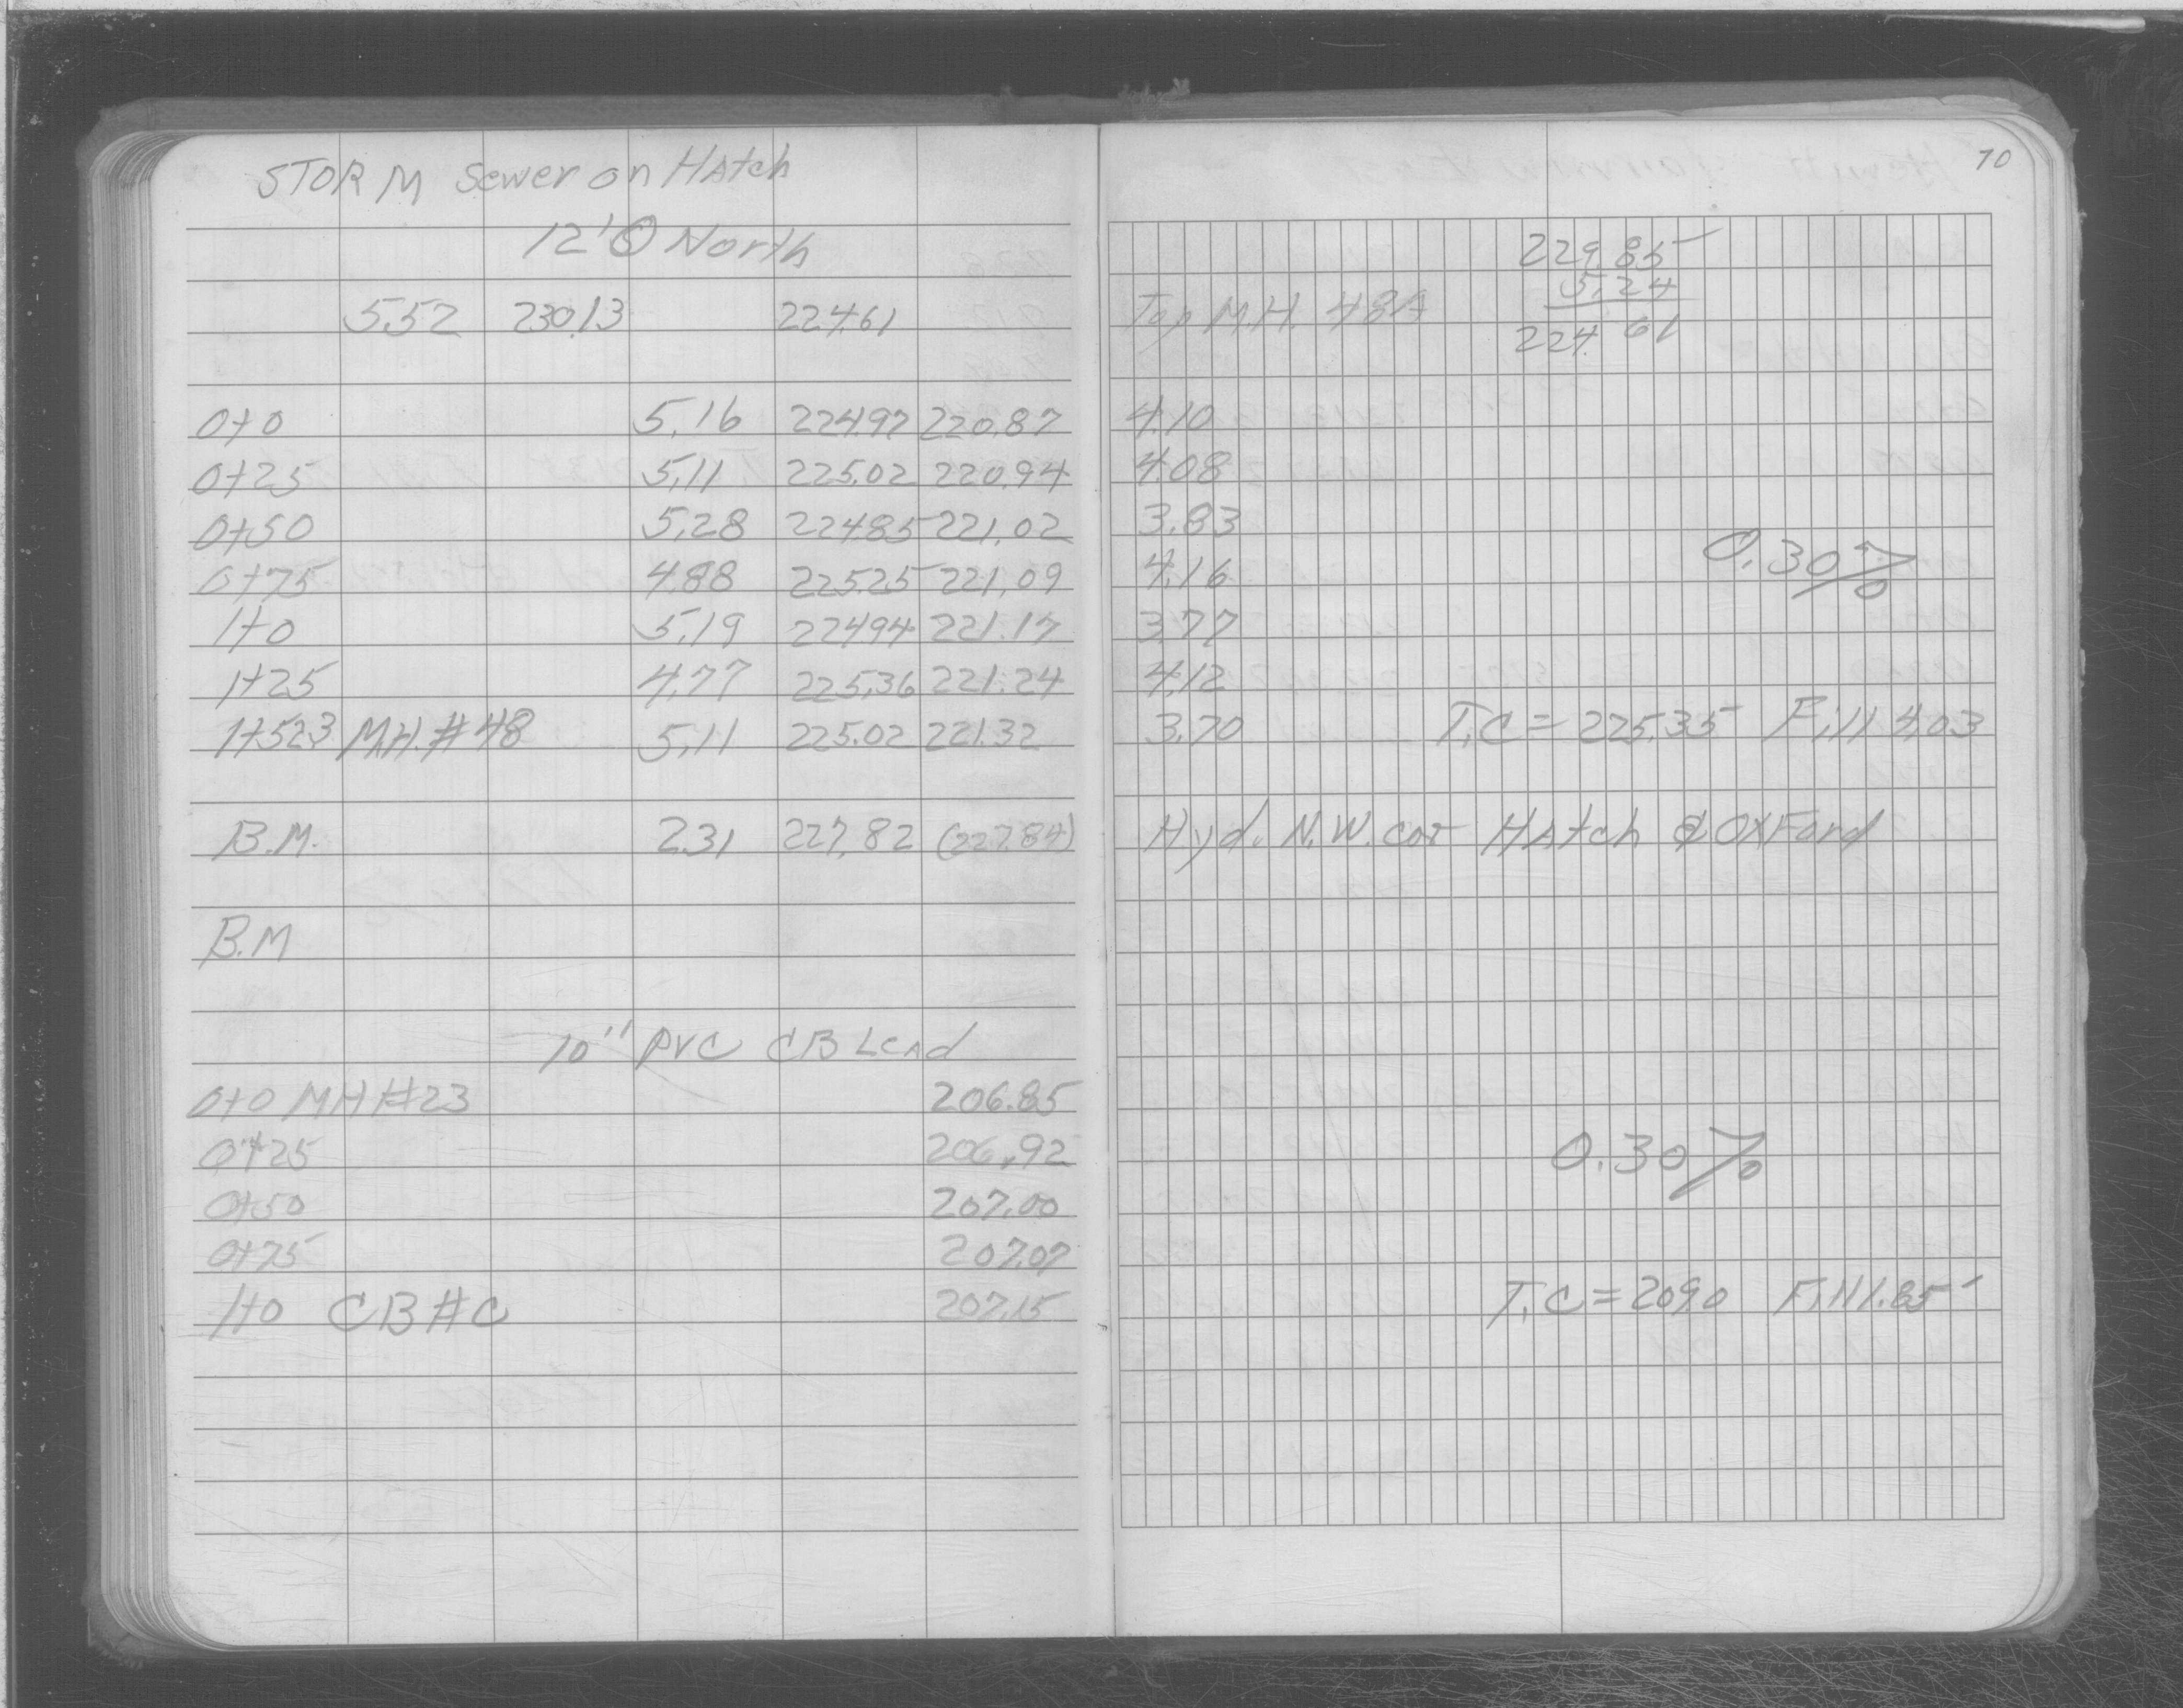 STORM Sewer on HAtch
12' O North
5.52 230.13 224.61
0+0 5.16 224.97 220.87
0+25 5.11 225.02 220.94
0+50 5.28 224.85 221.02
0+75 4.88 225.25 221.09
1+0 5.19 224.94 221.17
1+25 4.77 225.36 221.24
1+52.3 M.H. #48 5.11 225.02 221.32
B.M. 2.31 227.82 (227.84)
B.M
10" PVC CB LeAd
0+0 MH #23 206.85
0+25 206.92
0+50 207.00
0+75 207.07
1+0 CB #C 207.15
70
229.85
5.24
Top M.H. 48A
224.61
4.10
4.08
3.83
0.30%
4.16
3.77
4.12
3.70 T.C = 225.35 Fill 4.03
Hyd. N.W. cor HAtch & OxFord
0.30%
T.C = 209.0 Fill 1.85